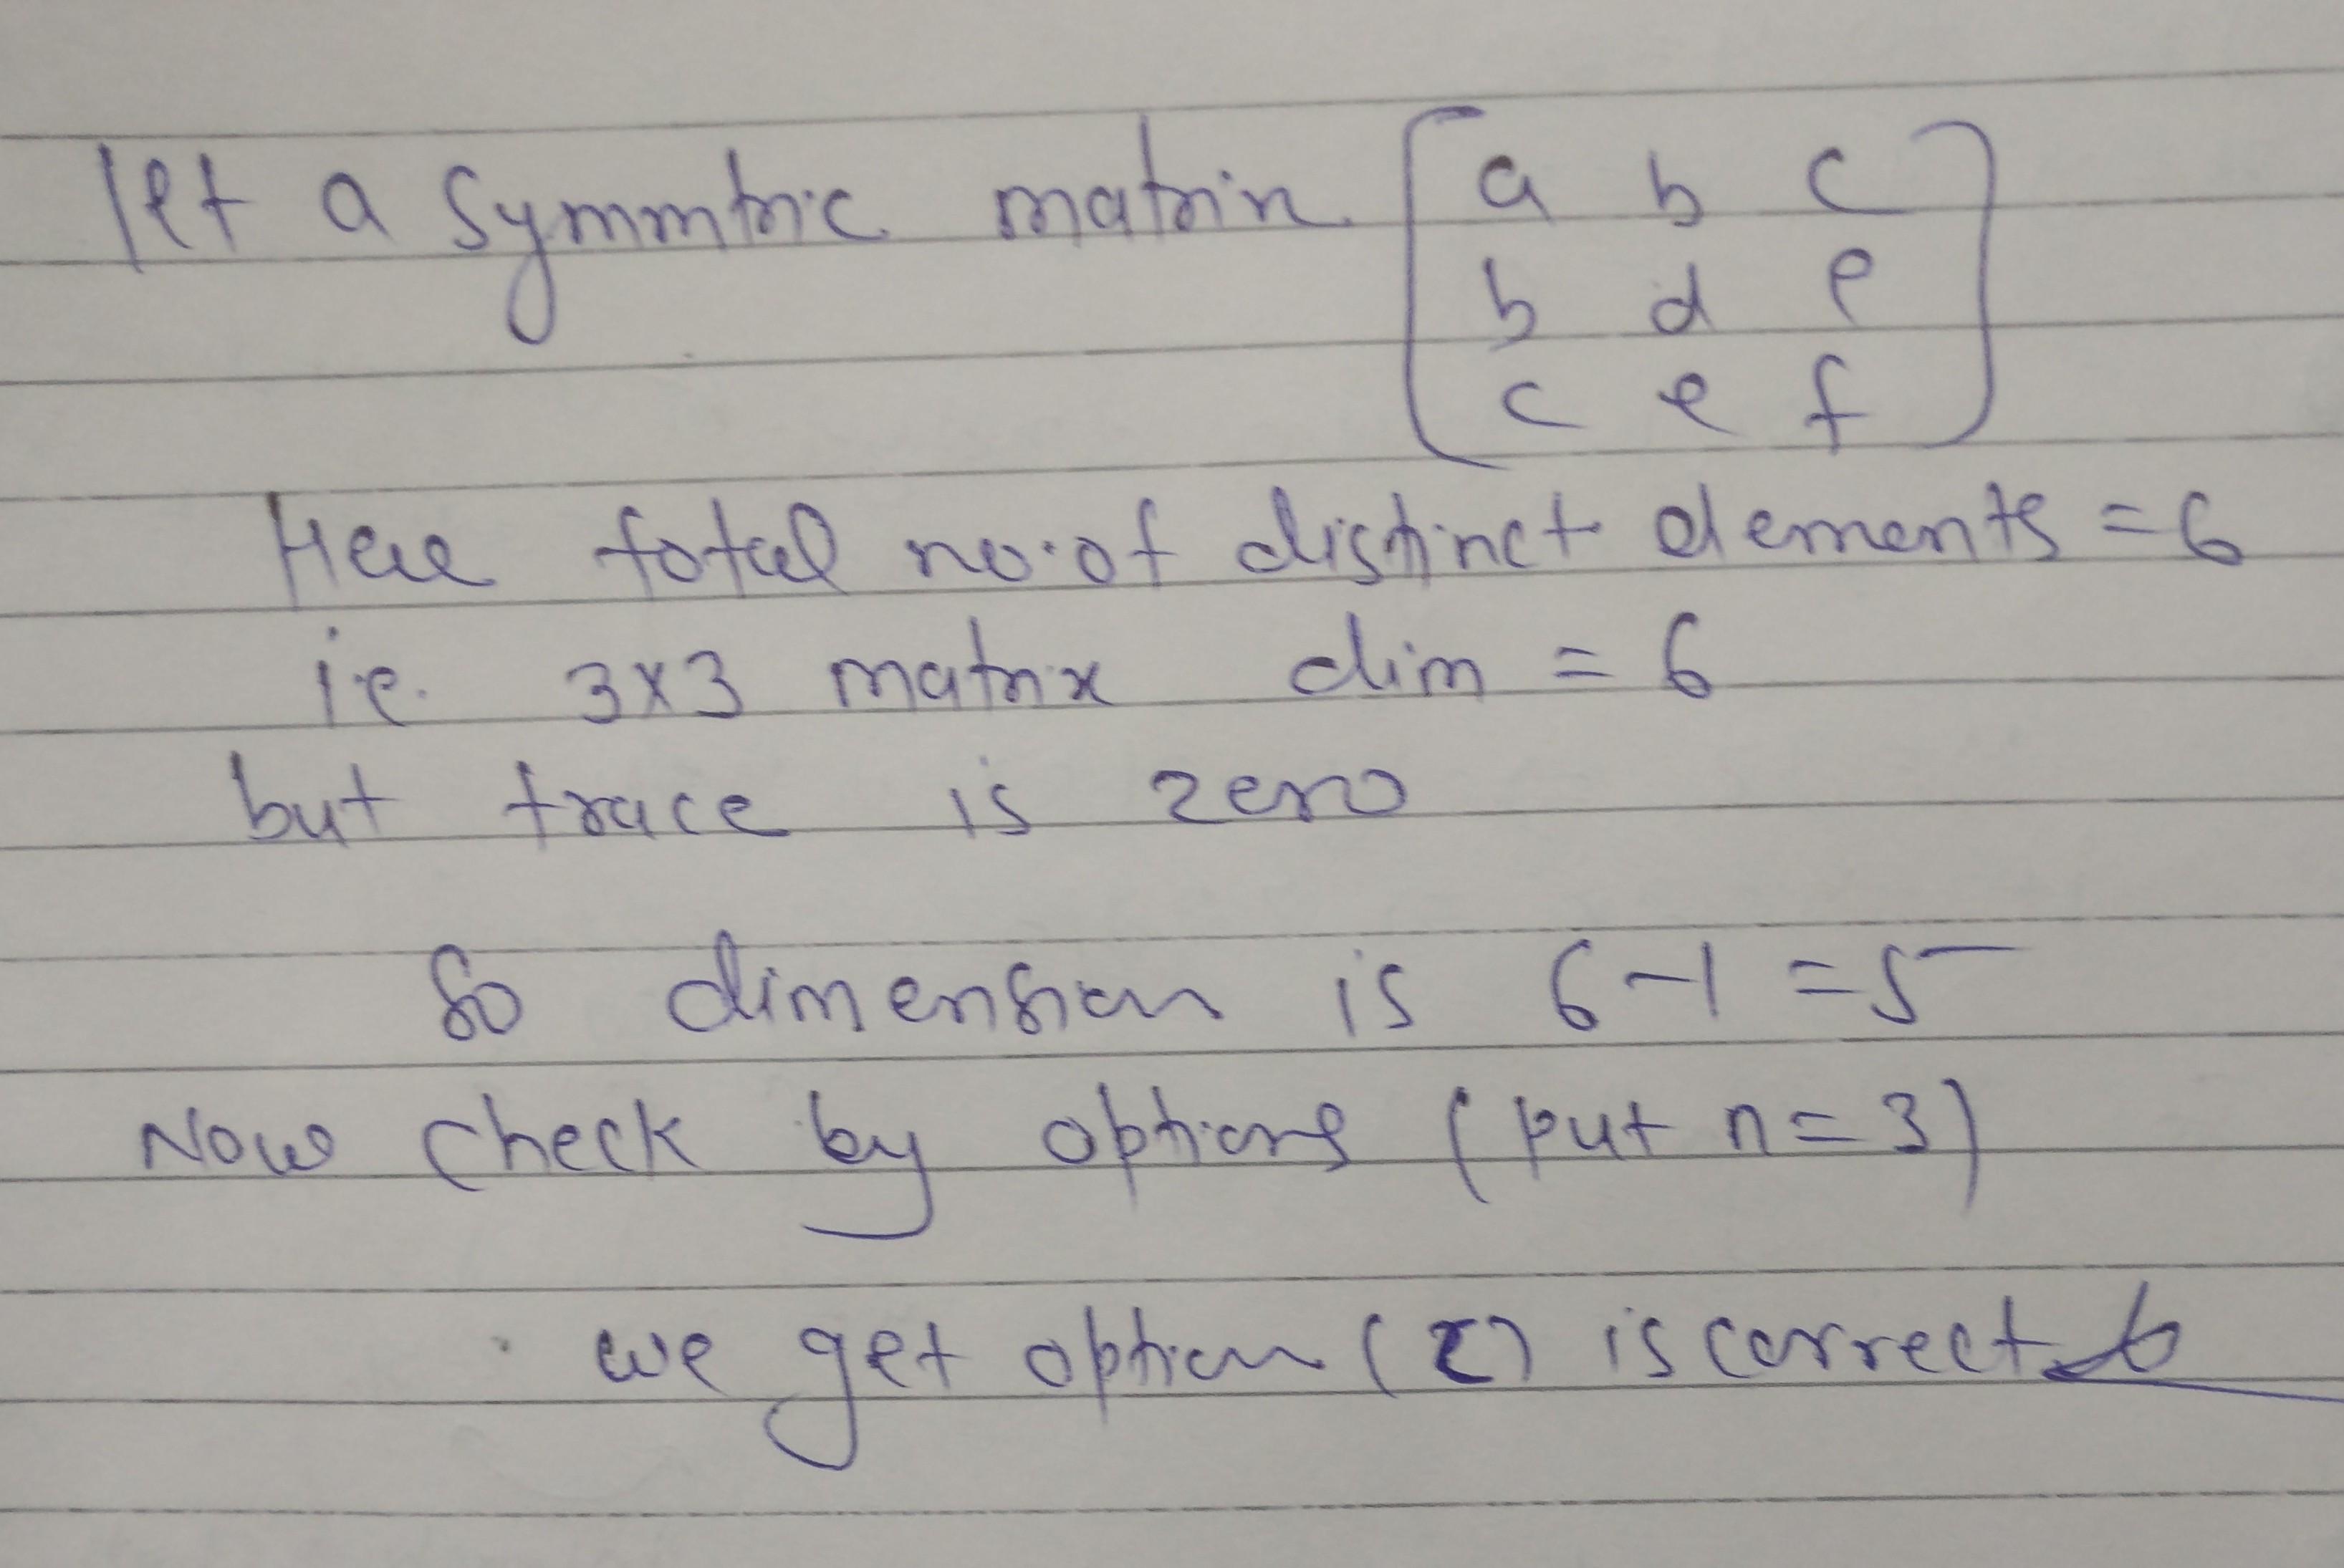 let a Symmtric matrin [a b c
b d e
c e f]
Here total no. of distinct elements = 6
i.e. 3x3 matrix dim = 6
but trace is zero
So dimension is 6-1 = 5
Now check by options (put n = 3)
we get option (c) is correct